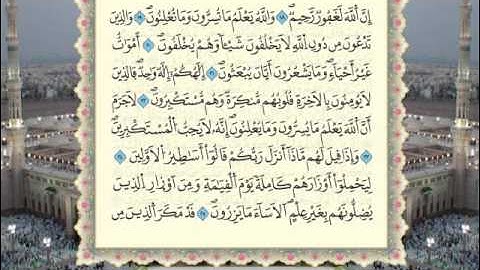 إِنَّ ٱللَّهَ لَغَفُورٌ رَّحِيمٌ ١٨ وَٱللَّهُ يَعْلَمُ مَا تُسِرُّونَ وَمَا تُعْلِنُونَ ١٩ وَٱلَّذِينَ
تَدْعُونَ مِن دُونِ ٱللَّهِ لَا يَخْلُقُونَ شَيْـًٔا وَهُمْ يُخْلَقُونَ ٢٠ أَمْوَٰتٌ
غَيْرُ أَحْيَآءٍ وَمَا يَشْعُرُونَ أَيَّانَ يُبْعَثُونَ ٢١ إِلَٰهُكُمْ إِلَٰهٌ وَٰحِدٌ فَٱلَّذِينَ
لَا يُؤْمِنُونَ بِٱلْآخِرَةِ قُلُوبُهُم مُّنكِرَةٌ وَهُم مُّسْتَكْبِرُونَ ٢٢ لَا جَرَمَ
أَنَّ ٱللَّهَ يَعْلَمُ مَا يُسِرُّونَ وَمَا يُعْلِنُونَ إِنَّهُۥ لَا يُحِبُّ ٱلْمُسْتَكْبِرِينَ
٢٣ وَإِذَا قِيلَ لَهُم مَّاذَآ أَنزَلَ رَبُّكُمْ قَالُوٓا۟ أَسَٰطِيرُ ٱلْأَوَّلِينَ ٢٤
لِيَحْمِلُوٓا۟ أَوْزَارَهُمْ كَامِلَةً يَوْمَ ٱلْقِيَٰمَةِ وَمِنْ أَوْزَارِ ٱلَّذِينَ
يُضِلُّونَهُم بِغَيْرِ عِلْمٍ أَلَا سَآءَ مَا يَزِرُونَ ٢٥ قَدْ مَكَرَ ٱلَّذِينَ مِن